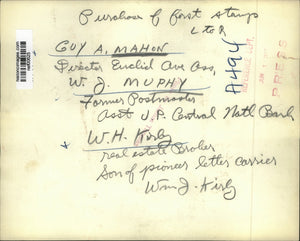 Purchase of first stamps
L to R
GUY A. MAHON
Director Euclid Ave Ass,
W. J. MUPHY
Former Postmaster
Asst V.P. Central Natl Bank
W. H. Kirby
real estate Broker
Son of pioneer letter carrier
Wm J. Kirby
A494
REFERENCE DEPT.
PRESS